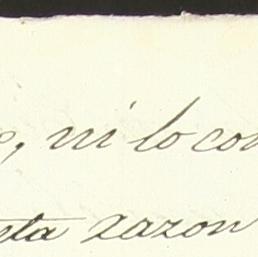 , ni lo con
sta razon